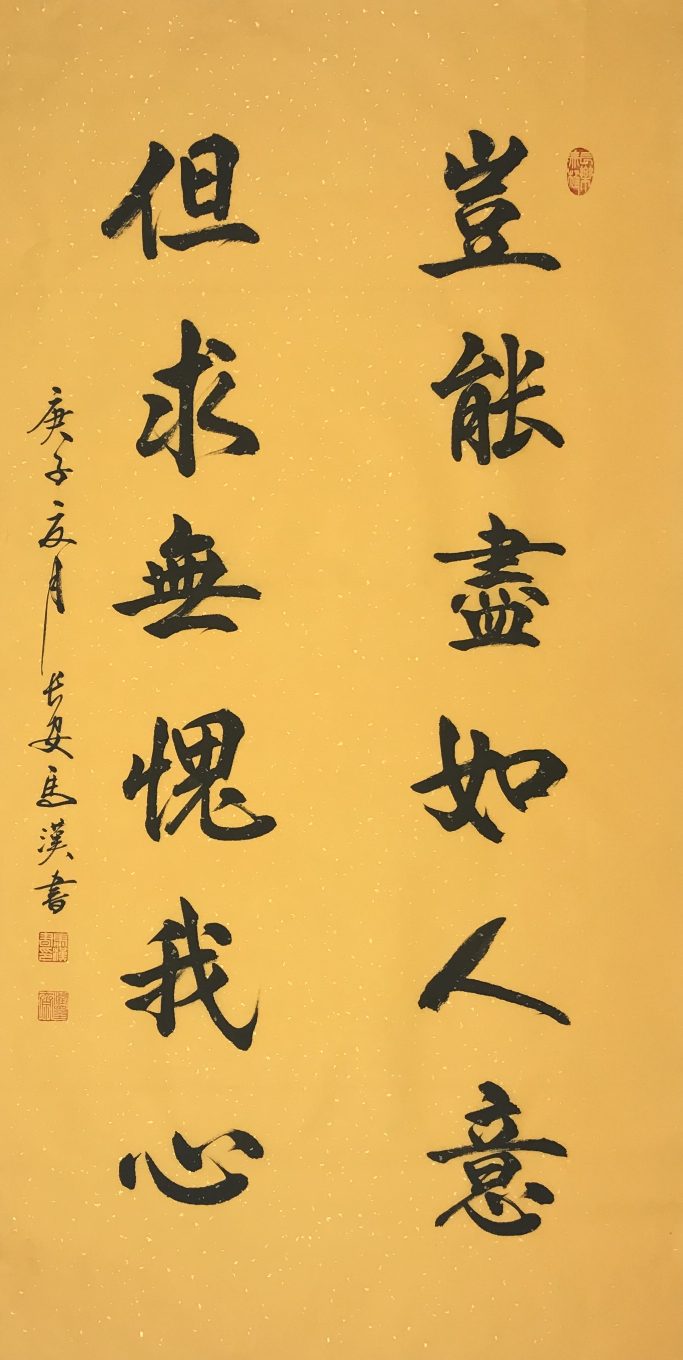 豈能盡如人意
但求無愧我心
庚子夏月長安馬漢書